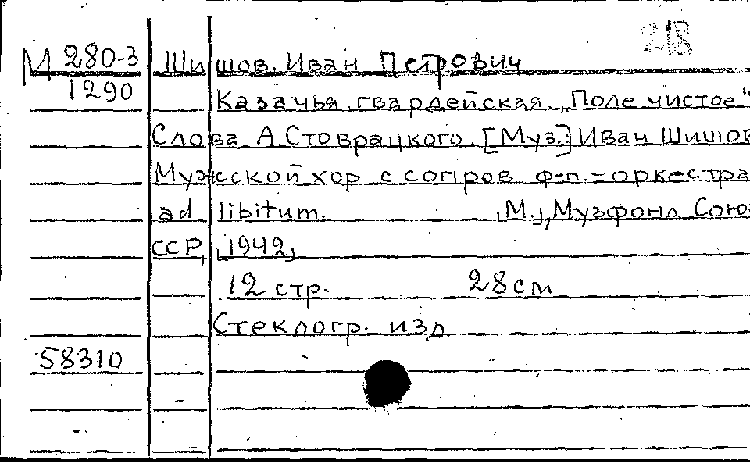 218
М 280-3 Шишов, Иван Петрович
1290 Казачья гвардейская „Поле чистое"
Слова А. Стоврацкого. [Муз.] Иван Шишов
Мужской хор с сопров. ф-п. - оркестра
ad libitum. М., Музфонд Союз
ССР, 1942,
12 стр. 28 см
Стеклогр. изд
58310